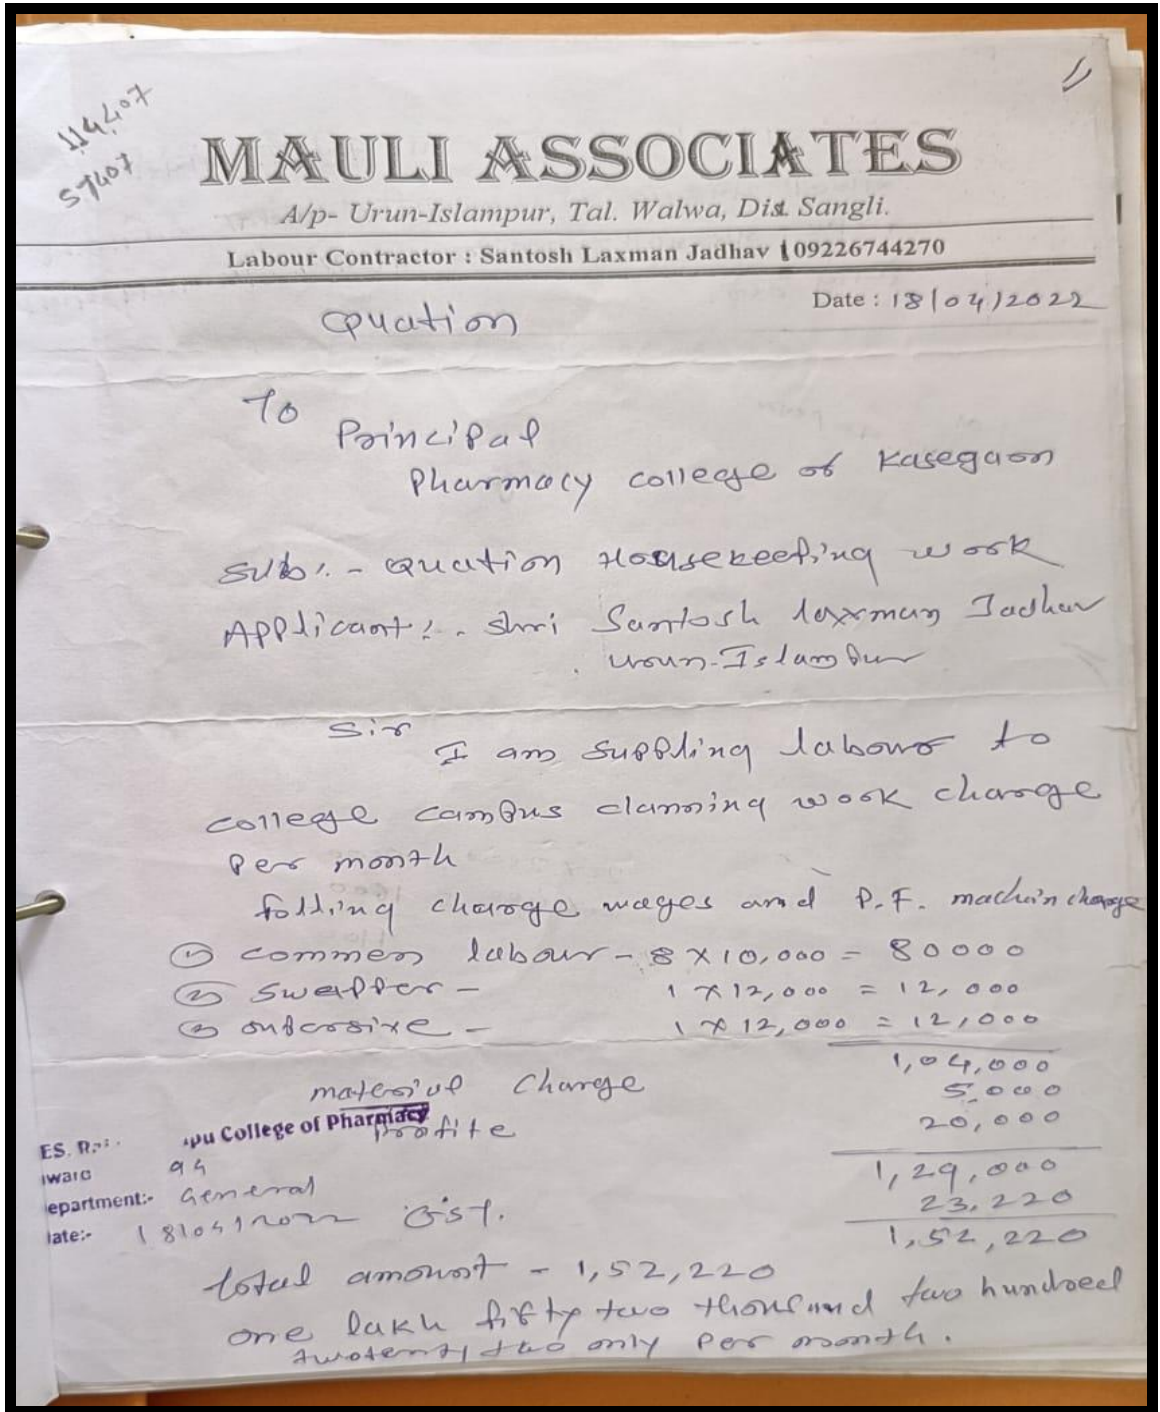 114407
57407
MAULI ASSOCIATES
A/p- Urun-Islampur, Tal. Walwa, Dist. Sangli.
Labour Contractor : Santosh Laxman Jadhav 09226744270
Date : 18/04/2022
Quation
To
Principal
Pharmacy college of Kasegaon
Sub:- Quation Housekeeping work
Applicant:- Shri Santosh laxman Jadhav
Urun-Islampur
Sir
I am suppling labour to
college campus clanning work charge
per month
folling charge wages and P.F. machin charge
① commen labour - 8 X 10,000 = 80000
② swepper - 1 X 12,000 = 12,000
③ - 1 X 12,000 = 12,000
1,04,000
material charge 5,000
profite 20,000
1,29,000
ES. College of Pharmacy
94
epartment:- General
ate:- 18/04/2022
GST. 23,220
1,52,220
total amount - 1,52,220
one lakh fifty two thousand two hundred
only per month.